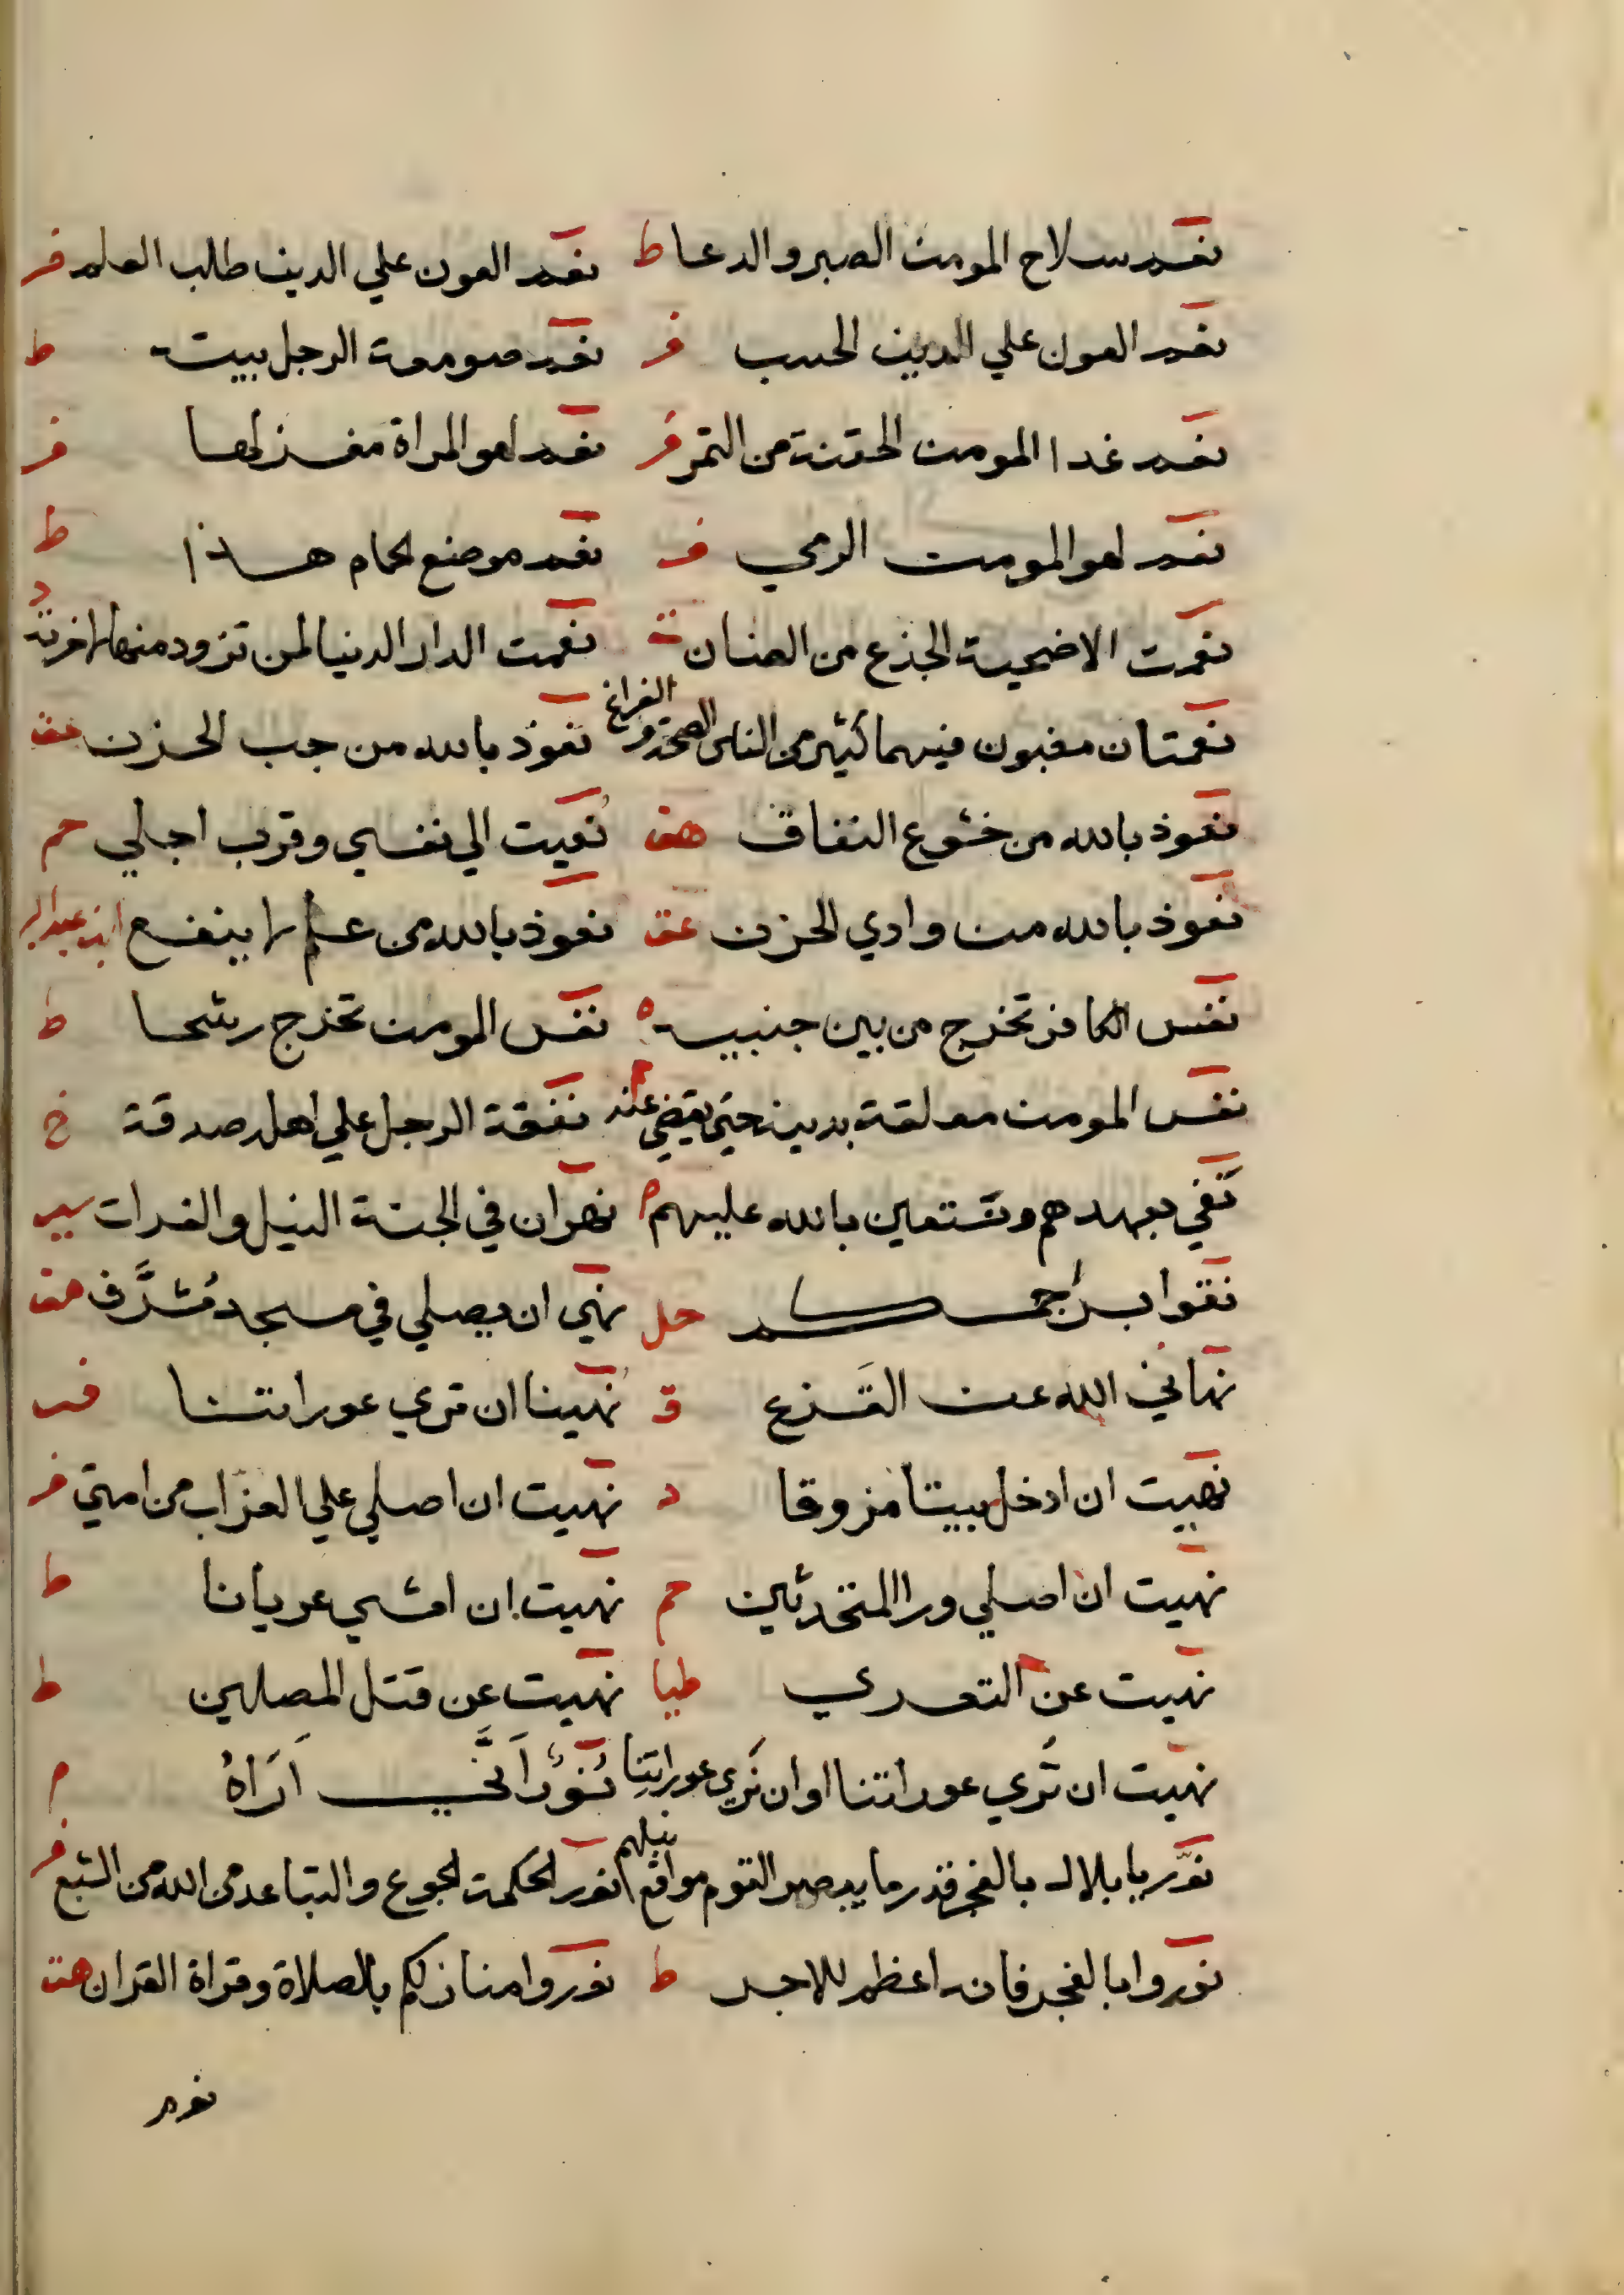 نعم سلاح المومن الصبر والدعا ط نعم العون علي الدين طلب العلم فر
نعم العون علي الدين الحسب فر نعم صومعة الرجل بيته ط
نعم غدا المومن الحقنة من التمر فر نعم لهو المراة مغزلها فر
نعم لهو المومن الرمي فر نعم موضع الحمام هذا ط
نعمت الاضحية الجذع من الضان ت نعمت الدار الدنيا لمن تزود منها لاخرته د
نعمتان مغبون فيهما كثير من الناس الصحة والفراغ نعوذ بالله من جب الحزن عق
نعوذ بالله من خشوع النفاق هق نعيت الي نفسي وقرب اجلي حم
نعوذ بالله من وادي الحزن عق نعوذ بالله من علم لا ينفع ابن عبد البر
نفس الكافر تخرج من بين جنبيه ه نفس المومن تخرج رشحا ط
نفس المومن معلقة بدينه حتي يقضي عنه نفقة الرجل علي اهله صدقة خ
نفي بعهدهم ونستعين بالله عليهم م نهران في الجنة النيل والفرات
نقوا براجمكم حل نهي ان يصلي في مسجد مُشرَّف هق
نهاني الله عن القزع ق نهينا ان تري عوراتنا
نهيت ان ادخل بيتا مزوقا د نهيت ان اصلي علي العزاب من امتي فر
نهيت ان اصلي ورا المتحدثين حم نهيت ان امشي عريانا ط
نهيت عن التعري طيا نهيت عن قتل المصلين ط
نهيت ان تُري عوراتنا او ان نَري عوراتِنا نُوْرٌ اَنَّي اَرَاهُ م
نوّر يا بلال بالفجر قدر ما يبصر القوم مواقع نبلهم نور الحكمة الجوع والتباعد من الله من الشبع فر
نوروا بالفجر فانه اعظم للاجر ط نوروا منازلكم بالصلاة وقراة القران هق
نوم